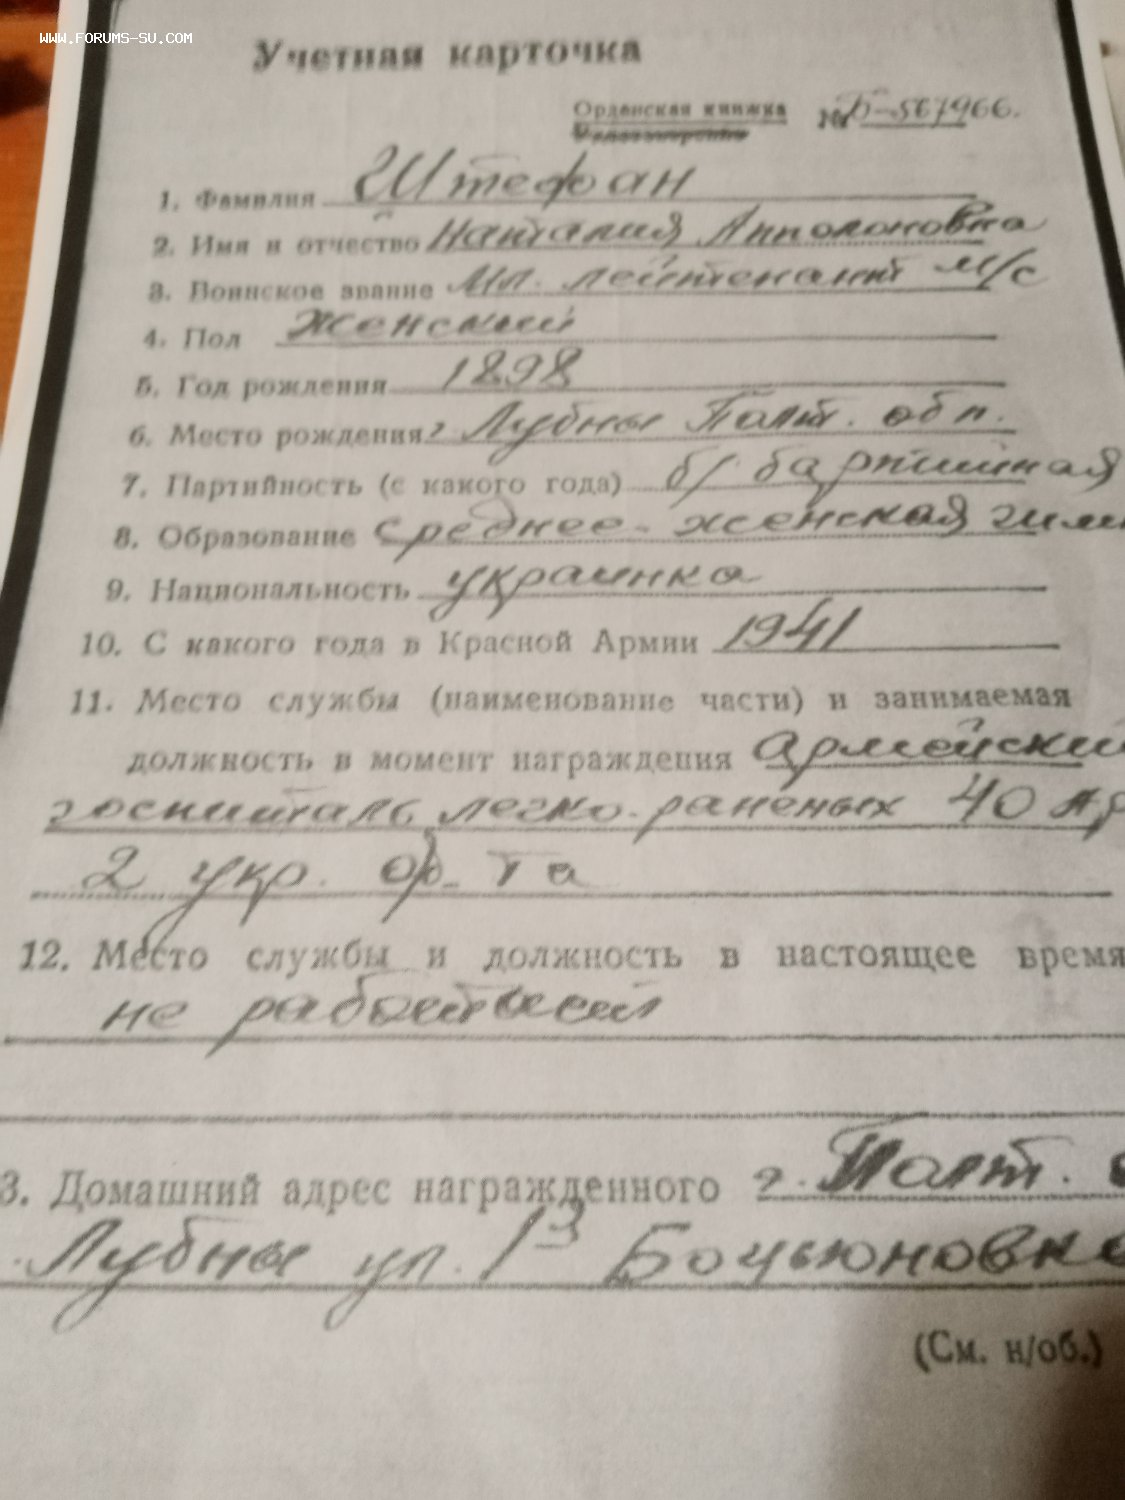 WWW.FORUMS-SU.COM
Учетная карточка
Орденская книжка № Б-567966.
1. Фамилия Штефан
2. Имя и отчество Наталия Апполоновна
3. Воинское звание Мл. лейтенант м/с
4. Пол женский
5. Год рождения 1898
6. Место рождения г Лубны Полт. обл.
7. Партийность (с какого года) б/партийная
8. Образование среднее - женская гим
9. Национальность украинка
10. С какого года в Красной Армии 1941
11. Место службы (наименование части) и занимаемая
должность в момент награждения армейский
госпиталь легко-раненых 40 Ар
2 укр. ф-та
12. Место службы и должность в настоящее время
не работает
3. Домашний адрес награжденного г. Полт. о
Лубны ул. 1
(См. н/об.)